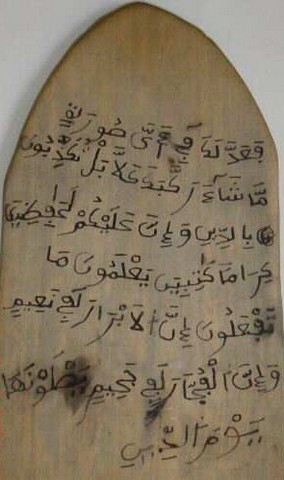 فَعَدَّلَكَ فِي أَيِّ صُورَةٍ
مَّا شَاءَ رَكَّبَكَ كَلَّا بَلْ تُكَذِّبُونَ
بِالدِّينِ وَإِنَّ عَلَيْكُمْ لَحَٰفِظِينَ
كِرَامًا كَٰتِبِينَ يَعْلَمُونَ مَا
تَفْعَلُونَ إِنَّ الَابْرَارَ لَفِي نَعِيمٍ
وَإِنَّ الْفُجَّارَ لَفِي جَحِيمٍ يَصْلَوْنَهَا
يَوْمَ الدِّينِ